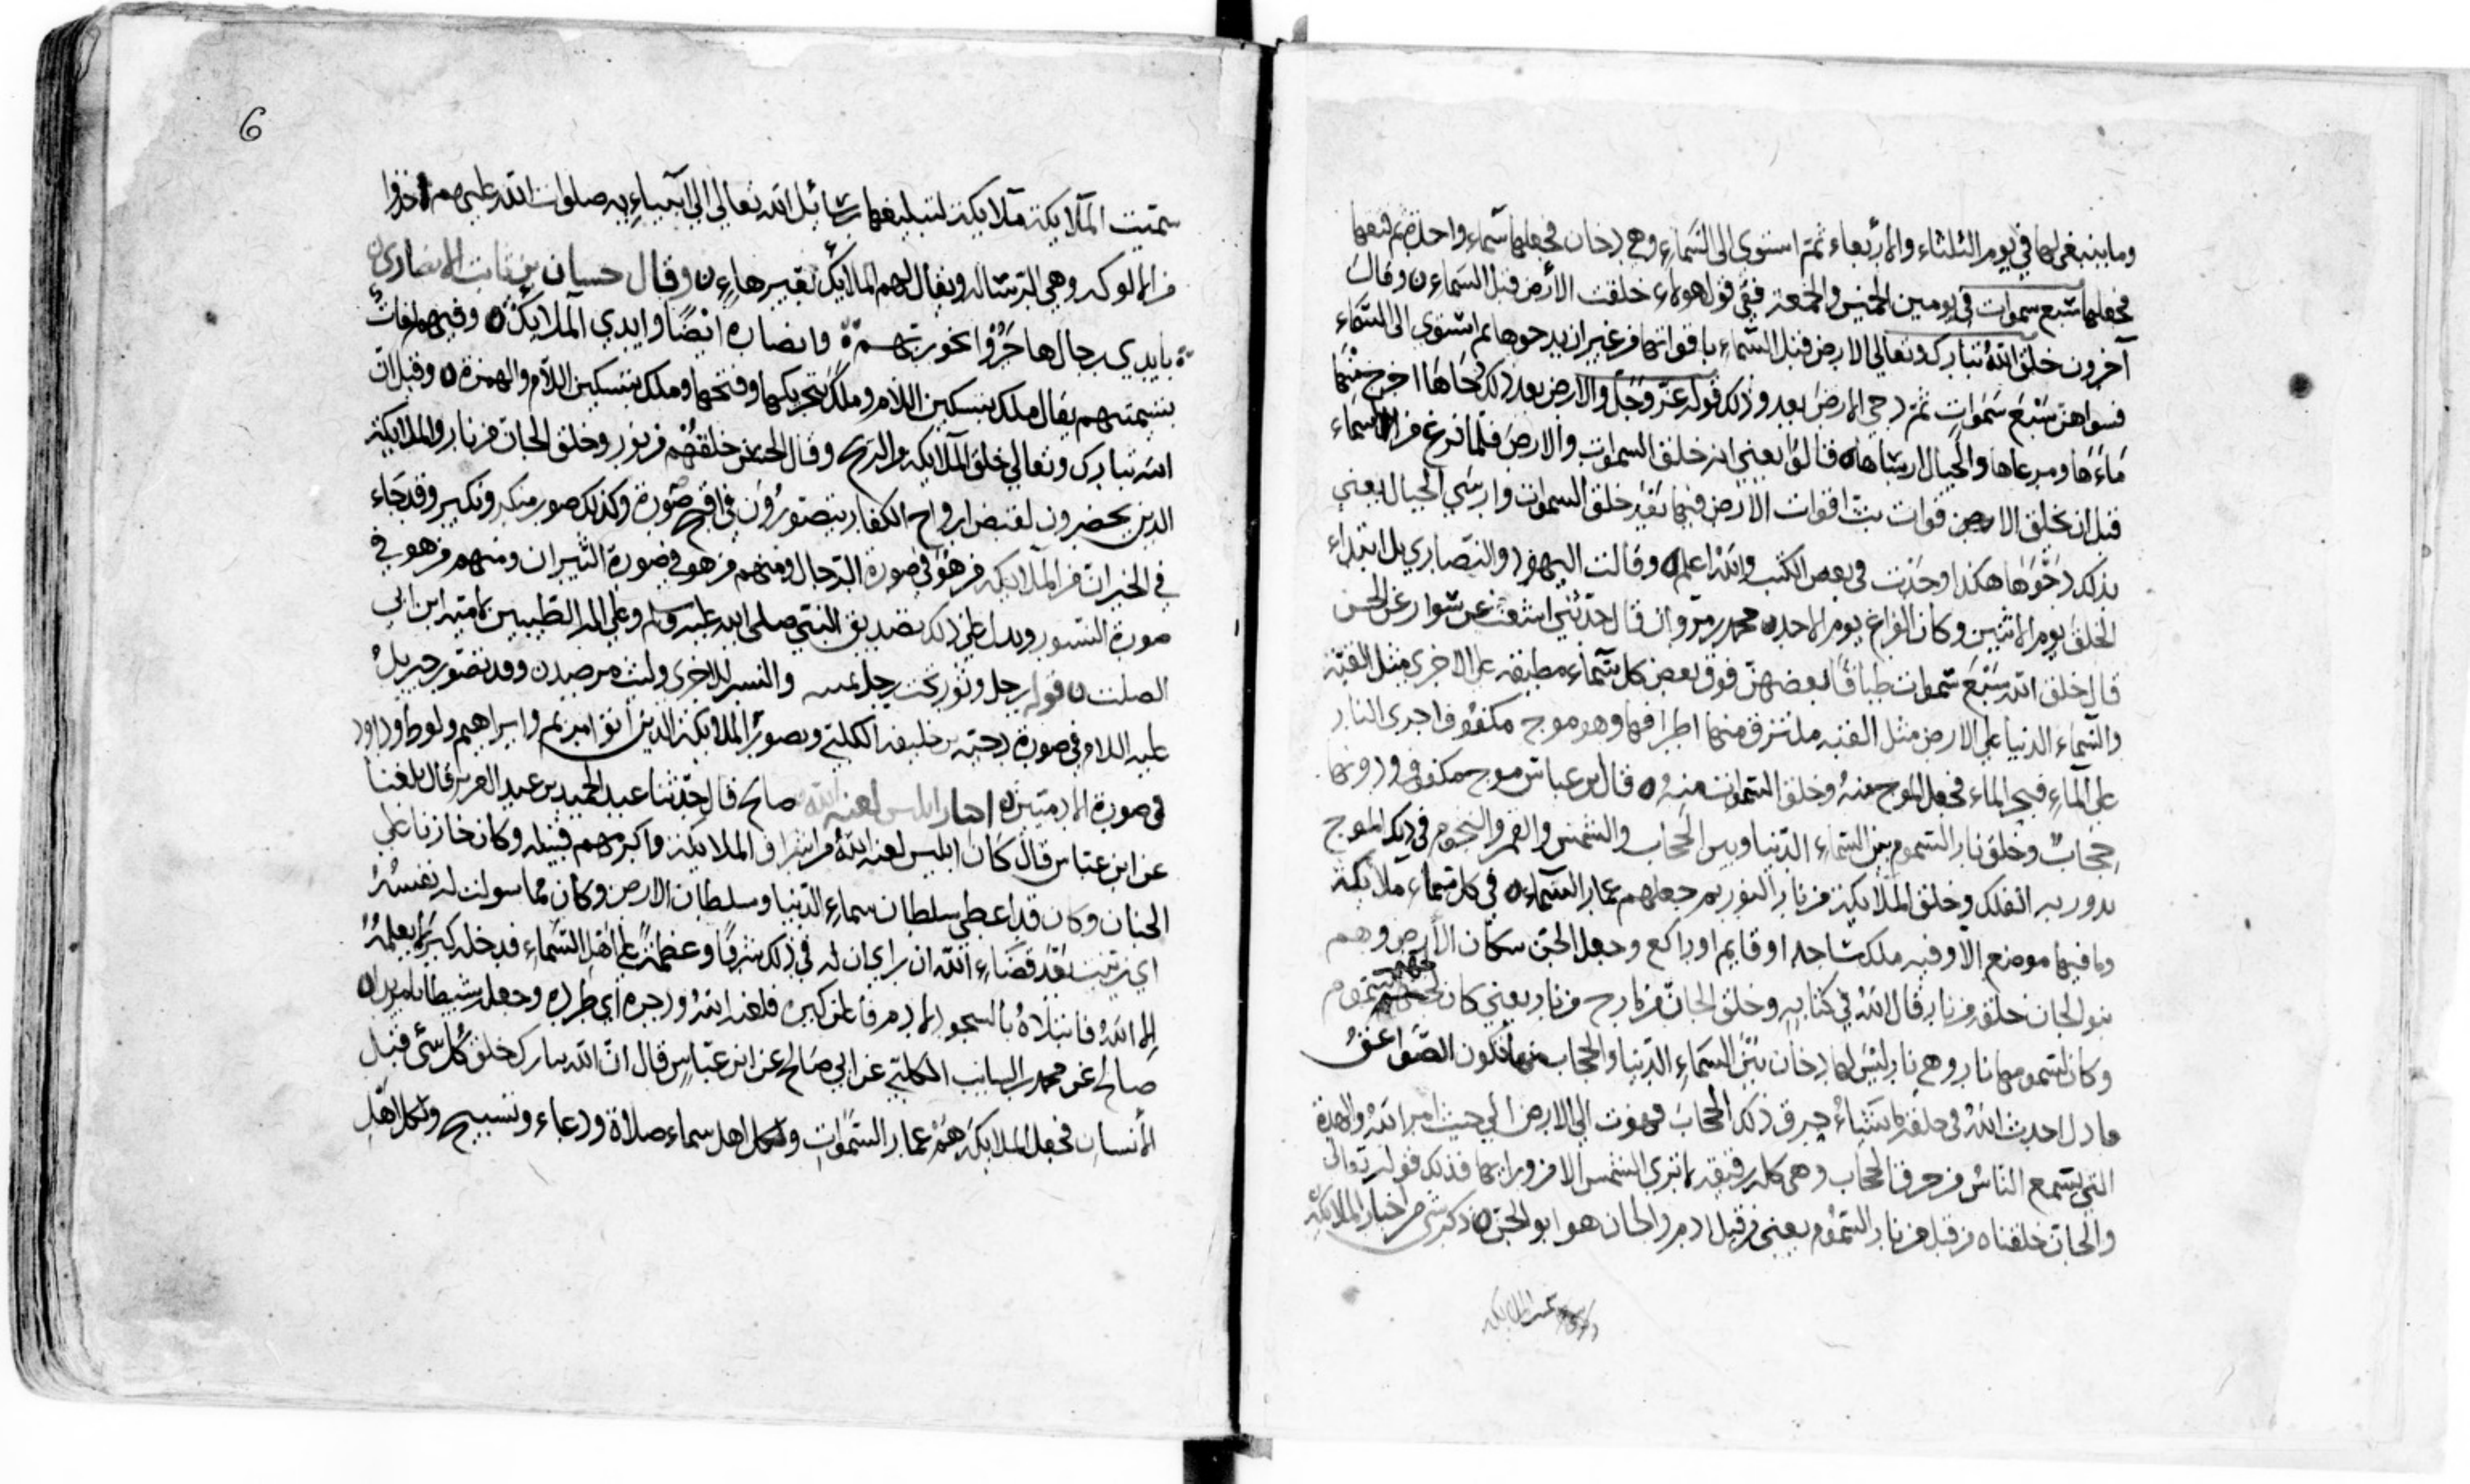 وما ينبغي لها في يوم الثلثاء والاربعاء ثم استوى الى السماء وهي دخان فجعلها سماء واحدة ثم فتقها
فجعلها سبع سموات في يومين الخميس والجمعة ففي قول هولاء خلقت الارض قبل السماء وقال
آخرون خلق الله تبارك وتعالى الارض قبل السماء باقواتها من غير ان يدحوها ثم استوى الى السماء
فسواهن سبع سموات ثم دحى الارض بعد وذلك قوله عز وجل والارض بعد ذلك دحاها اخرج منها
ماءها ومرعاها والجبال ارساها قالوا يعني انه خلق السموات والارض فلما فرغ من السماء
قبل ان يخلق الارض قوات بث اقوات الارض فيها بعد خلق السموات وارسى الجبال يعني
بذلك دحوها هكذا وجدت في بعض الكتب والله اعلم وقالت اليهود والنصارى بل ابتداء
الخلق يوم الاثنين وكان الفراغ يوم الاحد محمد بن مروان قال حدثني اشعث عن سوار عن الحسن
قال خلق الله سبع سموات طباقا بعضهن فوق بعض كل سماء مطبقة على الاخرى مثل القبة
والسماء الدنيا على الارض مثل القبة ملتزق منها اطرافها وهو موج مكفوف اجرى النار
على الماء فبخر الماء فجعل الموج منه وخلق السموات منه قال ابن عباس موج مكفوف ودونها
حجاب وخلق نار السموم بين السماء الدنيا وبين الحجاب والشمس والقمر والنجوم في ذلك الموج
يدور به الفلك وخلق الملائكة من نار النور ثم جعلهم عمار السماء في كل سماء ملائكة
وما فيها موضع الا وفيه ملك ساجد او قايم او راكع وجعل الجن سكان الارض وهم
بنو الجان خلقه من نار قال الله في كتابه وخلق الجان من مارج من نار يعني كان السموم
وكان السموم منها نار وهي نار ليس لها دخان بين السماء الدنيا والحجاب منها تكون الصواعق
احدث الله في خلقه ما يشاء خرق ذلك الحجاب فهوت الى الارض الى حيث امر الله والهدة
التي يسمع الناس من خرق الحجاب وهي كلة رقيقة ما ترى الشمس الا من ورائها فذلك قوله تعالى
والجان خلقناه من قبل من نار السموم يعني من قبل ادم والجان هو ابو الجن ذكر شي من اخبار الملائكة
6
سميت الملائكة ملائكة لتبليغها رسائل الله تعالى الى انبيائه صلوات الله عليهم اخذوا
من الالوكة وهي الرسالة ويقال لهم المالك بغير هاء وقال حسان بن ثابت الانصاري
بايدي رجال هاجروا نحو ربهم وانصاره ايضا وايدي الملائك وفيهم لغات
بتسميتهم يقال ملك بتسكين اللام وملك بتحريكها وفتحها وملئك بتسكين اللام والهمزة وقيل ان
الله تبارك وتعالى خلق الملائكة من الريح وقال الحسن خلقهم من نور وخلق الجان من نار والملائكة
الذين يحضرون لقبض ارواح الكفار يتصورون في اقبح صورة وكذلك صور منكر ونكير وقد جاء
في الخبر ان من الملائكة من هو في صورة الرجال ومنهم من هو في صورة الثيران ومنهم من هو في
صورة النسور ويدل على ذلك تصديق النبي صلى الله عليه وسلم وعلى اله الطيبين لامية ابن ابي
الصلت في قوله رجل وثور تحت رجل يمينه والنسر للاخرى وليث مرصد وقد تصور جبريل
عليه السلام في صورة دحية بن خليفة الكلبي وبصور الملائكة الذين اتوا مريم وابراهيم ولوط وداود
في صورة الادميين اخبار ابليس لعنه الله صالح قال حدثنا عبد الحميد بن عبد العزيز قال بلغنا
عن ابن عباس قال كان ابليس لعنه الله من اشراف الملائكة واكرمهم قبيلة وكان خازنا على
الجنان وكان قد اعطي سلطان سماء الدنيا وسلطان الارض وكان مما سولت له نفسه
اي زينت بعد قضاء الله ان راى ان له في ذلك شرفا وعظمة على اهل السماء فدخله كبر لم يعلمه
الا الله فابتلاه بالسجود لادم فامتنع كبره فلعنه الله ودحره اي طرده وجعله شيطانا مريدا
صالح عن محمد بن السايب الكلبي عن ابي صالح عن ابن عباس قال ان الله تبارك خلق كل شي قبل
الانسان فجعل الملائكة هم عمار السموات ولكل اهل سماء صلاة ودعاء وتسبيح ولكل اهل